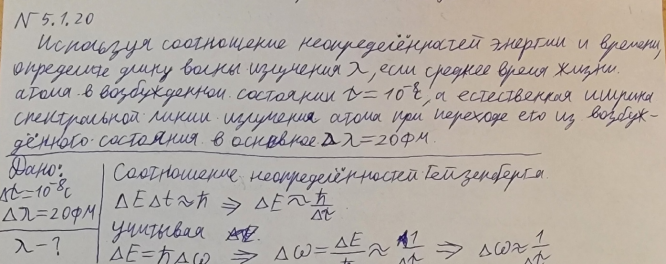 N 5.1.20
Используя соотношение неопределённостей энергии и времени,
определите длину волны излучения λ, если среднее время жизни
атома в возбужденном состоянии τ = 10⁻⁸с, а естественная ширина
спектральной линии излучения атома при переходе его из возбуж-
дённого состояния в основное Δλ = 20фм.
Дано:
Δt = 10⁻⁸с
Δλ = 20фм
λ - ?
Соотношение неопределённостей Гейзенберга
ΔEΔt ≈ ħ ⇒ ΔE ≈ ħ/Δt
учитывая
ΔE = ħΔω ⇒ Δω = ΔE/ħ ≈ 1/Δt ⇒ Δω ≈ 1/Δt